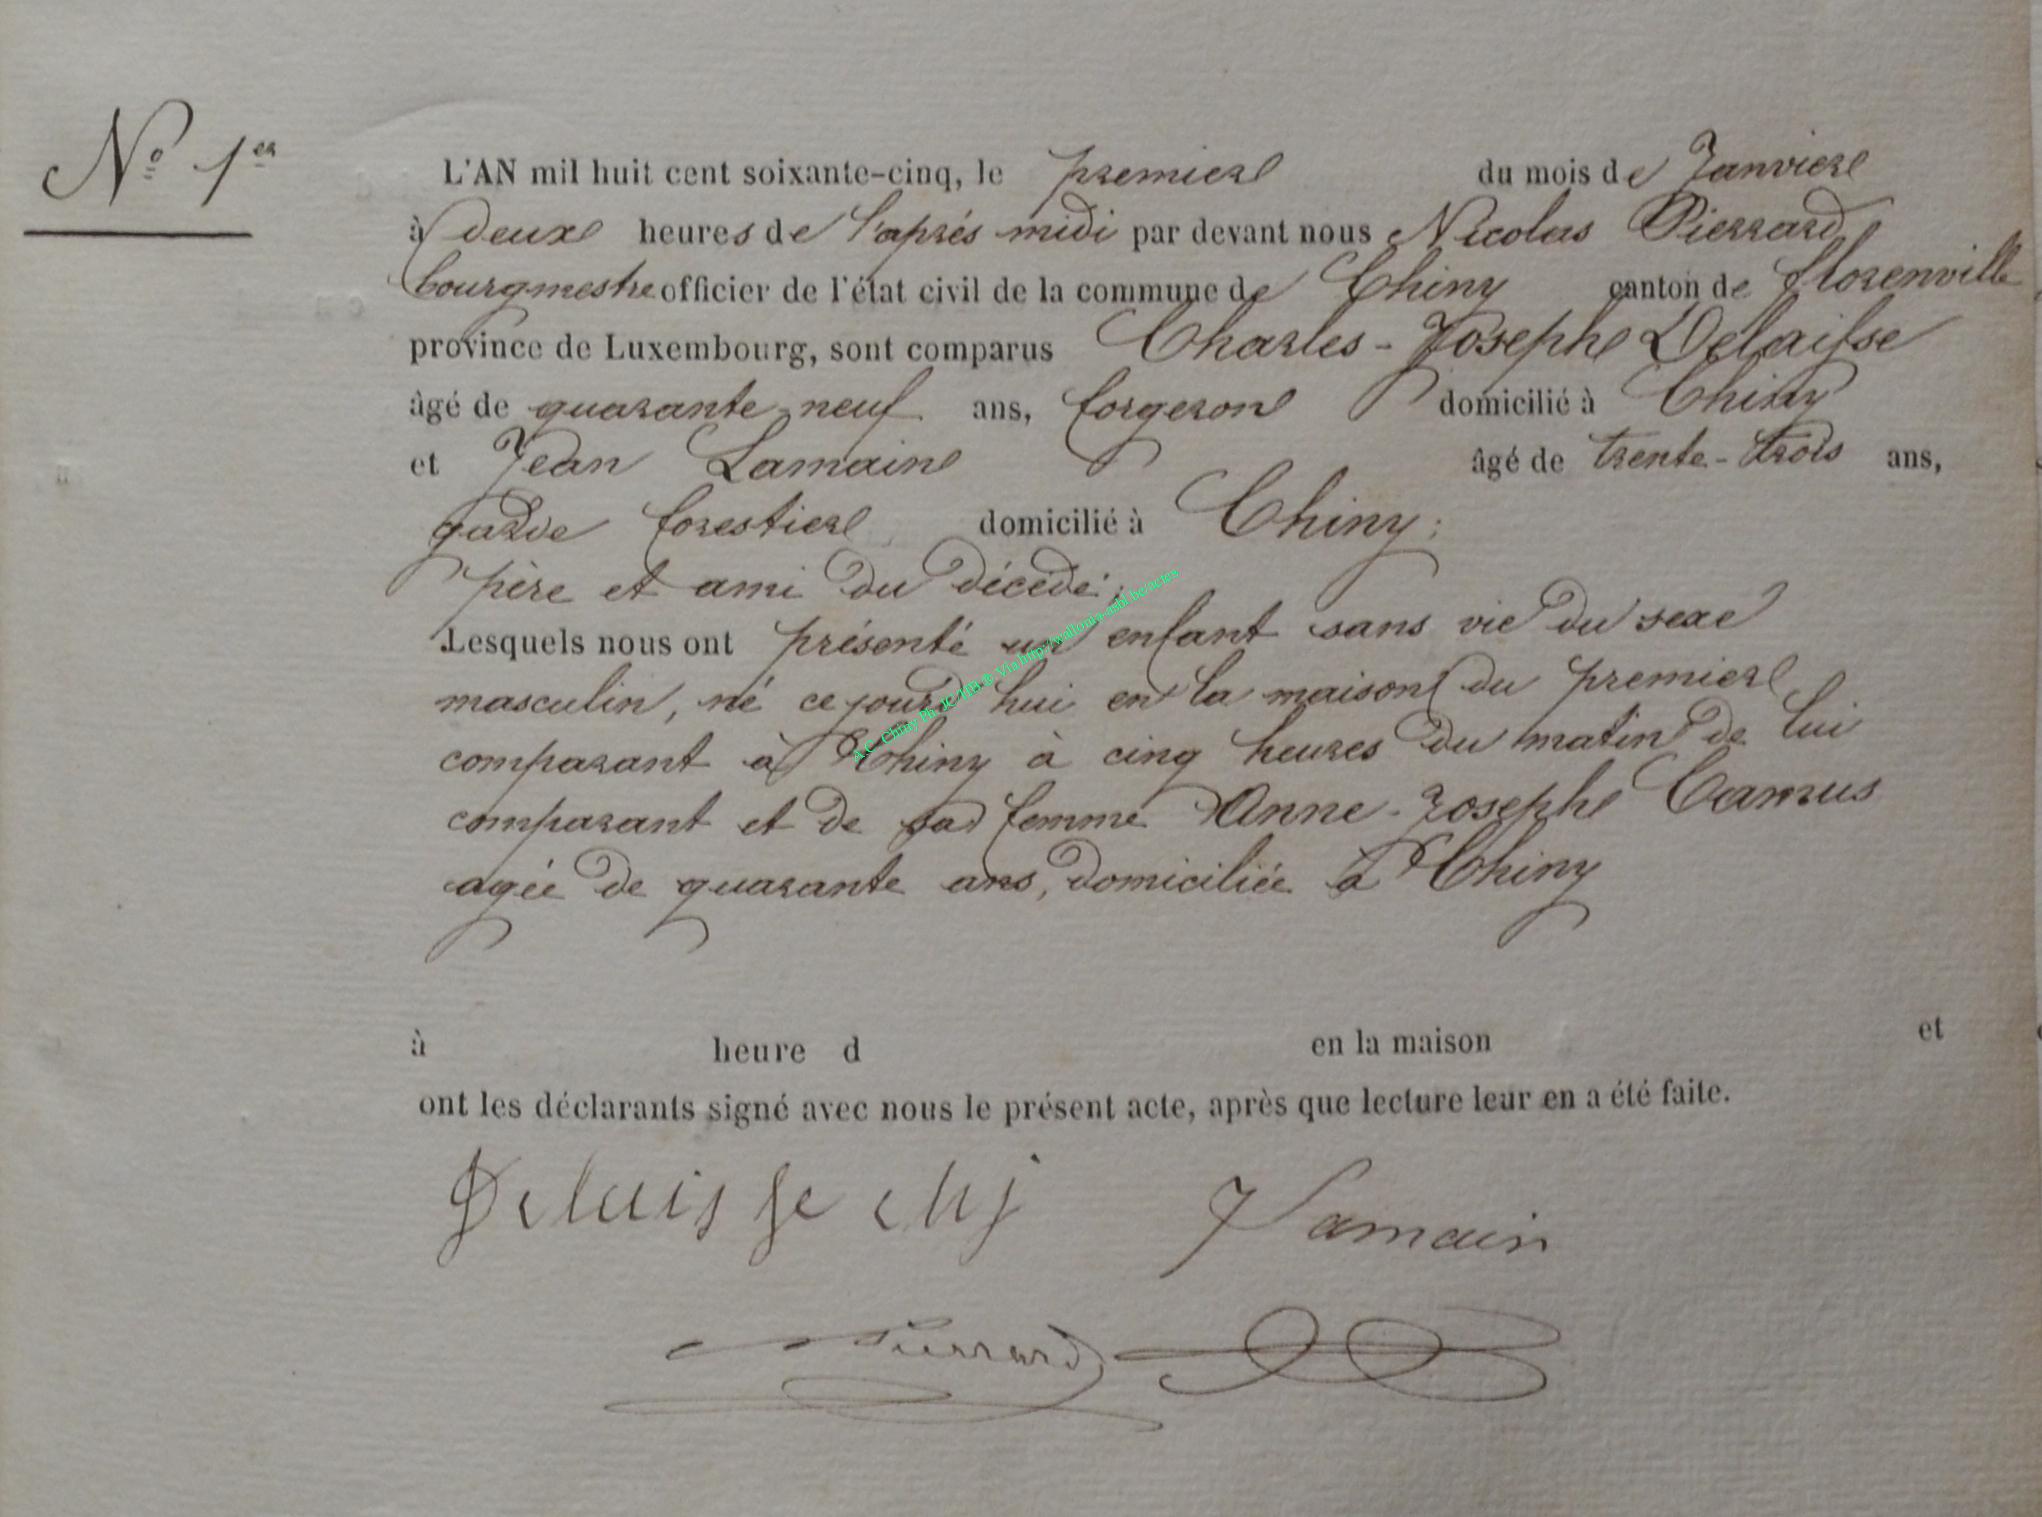 N° 1er
L'AN mil huit cent soixante-cinq, le premier du mois de Janvier
à deux heures de l'après midi par devant nous Nicolas Pierrard
bourgmestre officier de l'état civil de la commune de Chiny canton de florenville
province de Luxembourg, sont comparus Charles-Joseph Delaisse
âgé de quarante neuf ans, forgeron domicilié à Chiny
et Jean Lamain âgé de trente-trois ans,
garde forestier domicilié à Chiny;
père et ami du décédé;
Lesquels nous ont présenté un enfant sans vie du sexe
masculin, né ce jour d'hui en la maison du premier
comparant à Chiny à cinq heures du matin de lui
comparant et de sa femme Anne-Josephe Camus
agée de quarante ans, domiciliée à Chiny
à heure d en la maison et
ont les déclarants signé avec nous le présent acte, après que lecture leur en a été faite.
Delaisse chj J Lamain
Pierrard
A.C. Chiny Ph. JC MB ® Via http://wallonia-asbl.be/actes